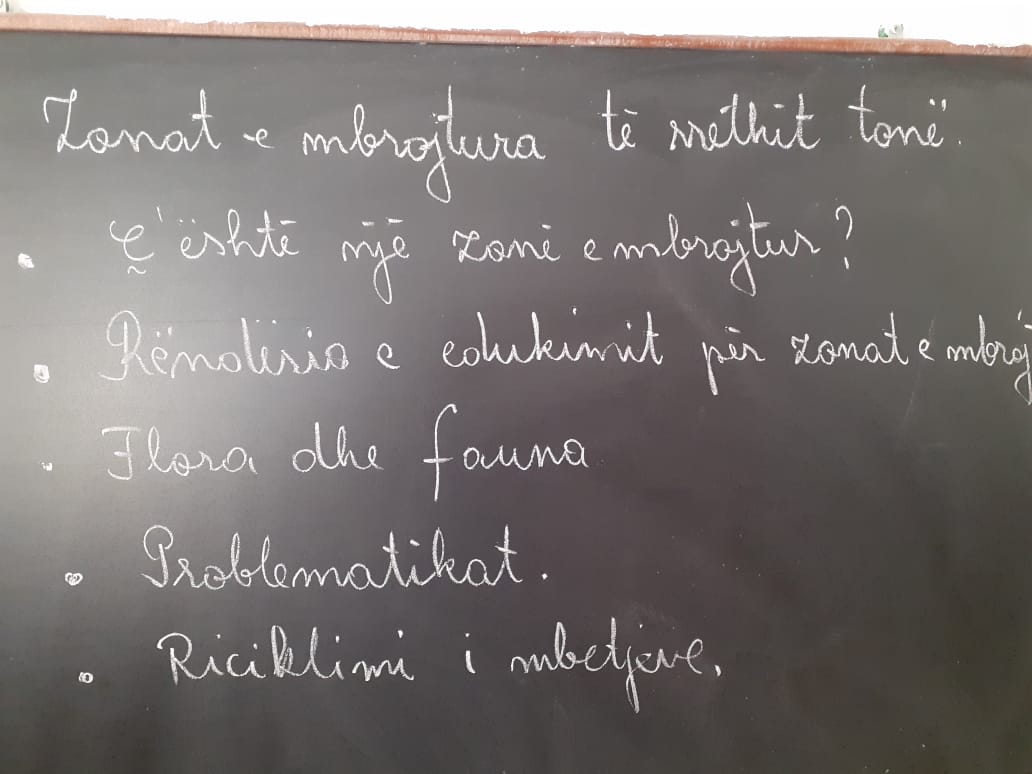 Zonat e mbrojtura të rrethit tonë.
• Ç'është një zonë e mbrojtur?
• Rëndësia e edukimit për zonat e mbroj
• Flora dhe fauna
• Problematikat.
• Riciklimi i mbetjeve.